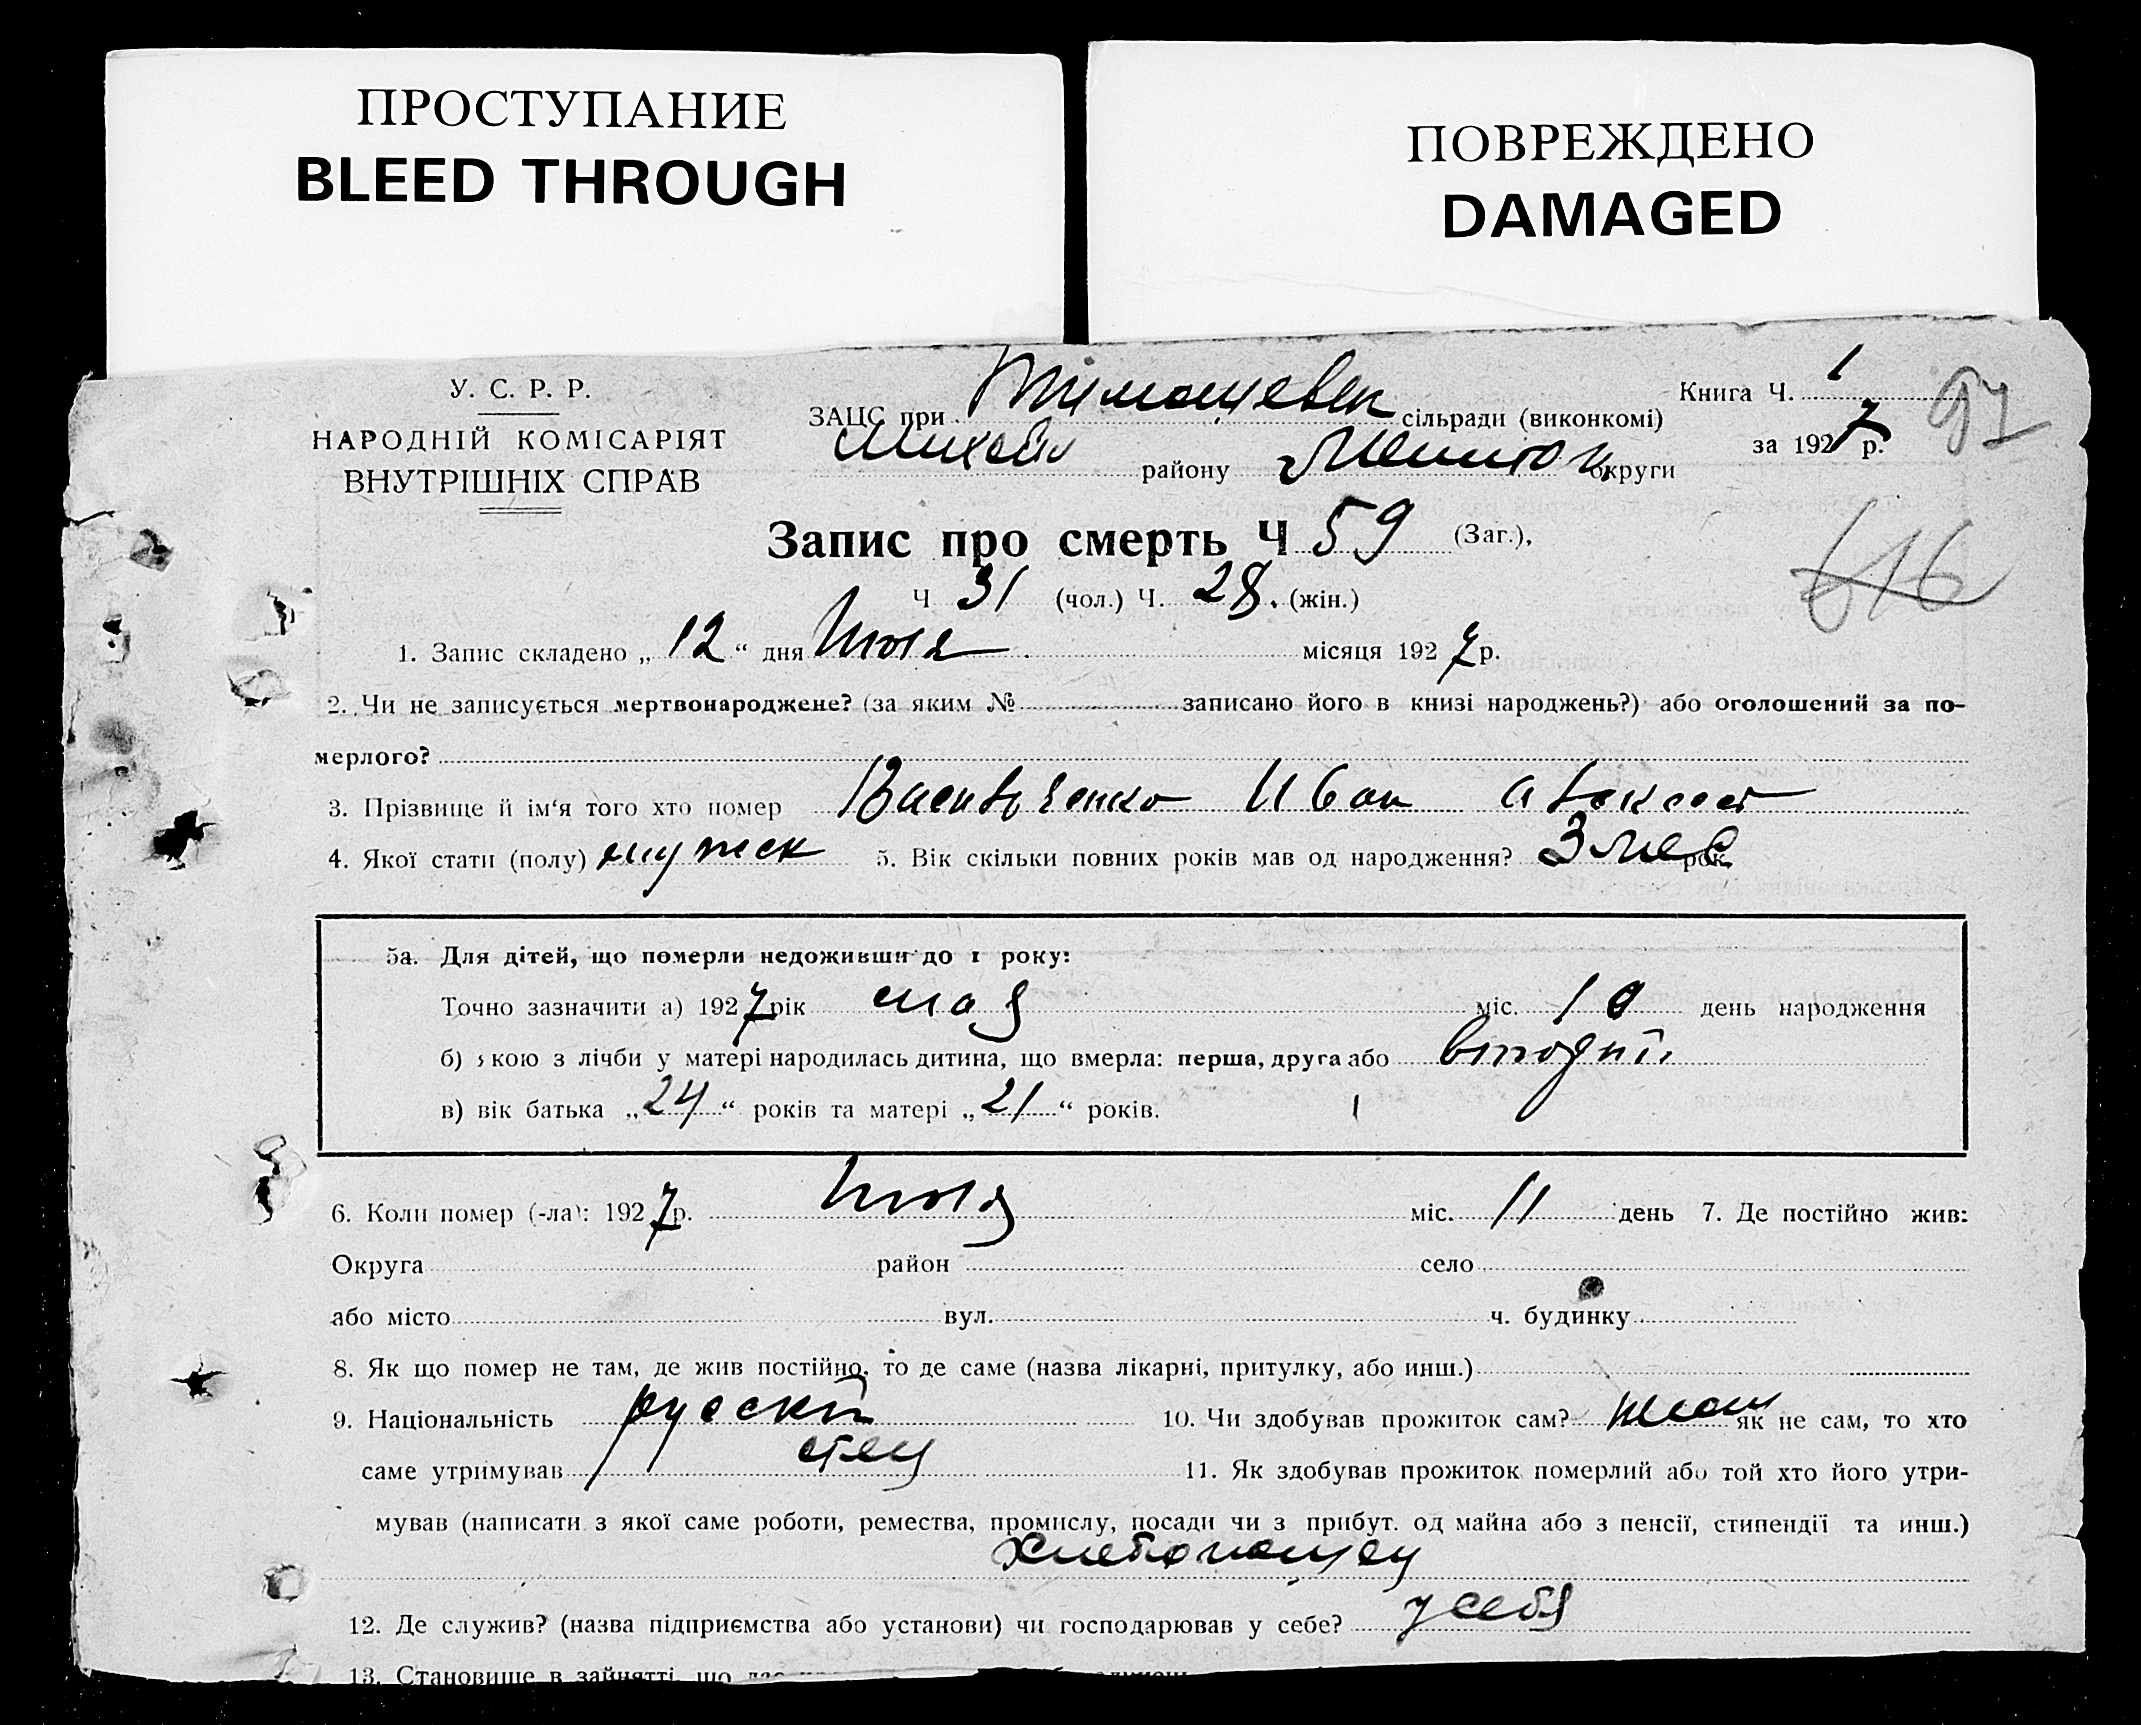 ПРОСТУПАНИЕ
BLEED THROUGH
ПОВРЕЖДЕНО
DAMAGED
У. С. Р. Р.
НАРОДНІЙ КОМІСАРІЯТ
ВНУТРІШНІХ СПРАВ
ЗАЦС при Тимошевск сільради (виконкомі)
Михайл району Мелитоп округи
Книга Ч. 1
за 1927 р.
97
616
Запис про смерть Ч 59 (Заг.),
Ч 31 (чол.) Ч. 28. (жін.)
1. Запис складено „ 12 “ дня Июля місяця 1927 р.
2. Чи не записується мертвонароджене? (за яким № записано його в книзі народжень?) або оголошений за по-
мерлого?
3. Прізвище й ім‘я того хто помер Васильченко Иван Алексеев
4. Якої стати (полу) мужск 5. Вік скільки повних років мав од народження? 3 мес рок.
5а. Для дітей, що померли недоживши до 1 року:
Точно зазначити а) 1927 рік мая міс. 10 день народження
б) якою з лічби у матері народилась дитина, що вмерла: перша, друга або
в) вік батька „ 24 “ років та матері „ 21 “ років.
6. Коли помер (-ла): 1927 р. Июля міс. 11 день 7. Де постійно жив:
Округа район село
або місто вул. ч. будинку
8. Як що помер не там, де жив постійно, то де саме (назва лікарні, притулку, або инш.)
9. Національність русский 10. Чи здобував прожиток сам? як не сам, то хто
саме утримував отец 11. Як здобував прожиток померлий або той хто його утри-
мував (написати з якої саме роботи, ремества, промислу, посади чи з прибут. од майна або з пенсії, стипендії та инш.)
хлебопашец
12. Де служив? (назва підприємства або установи) чи господарював у себе? у себя
13. Становище в зайнятті, що дає